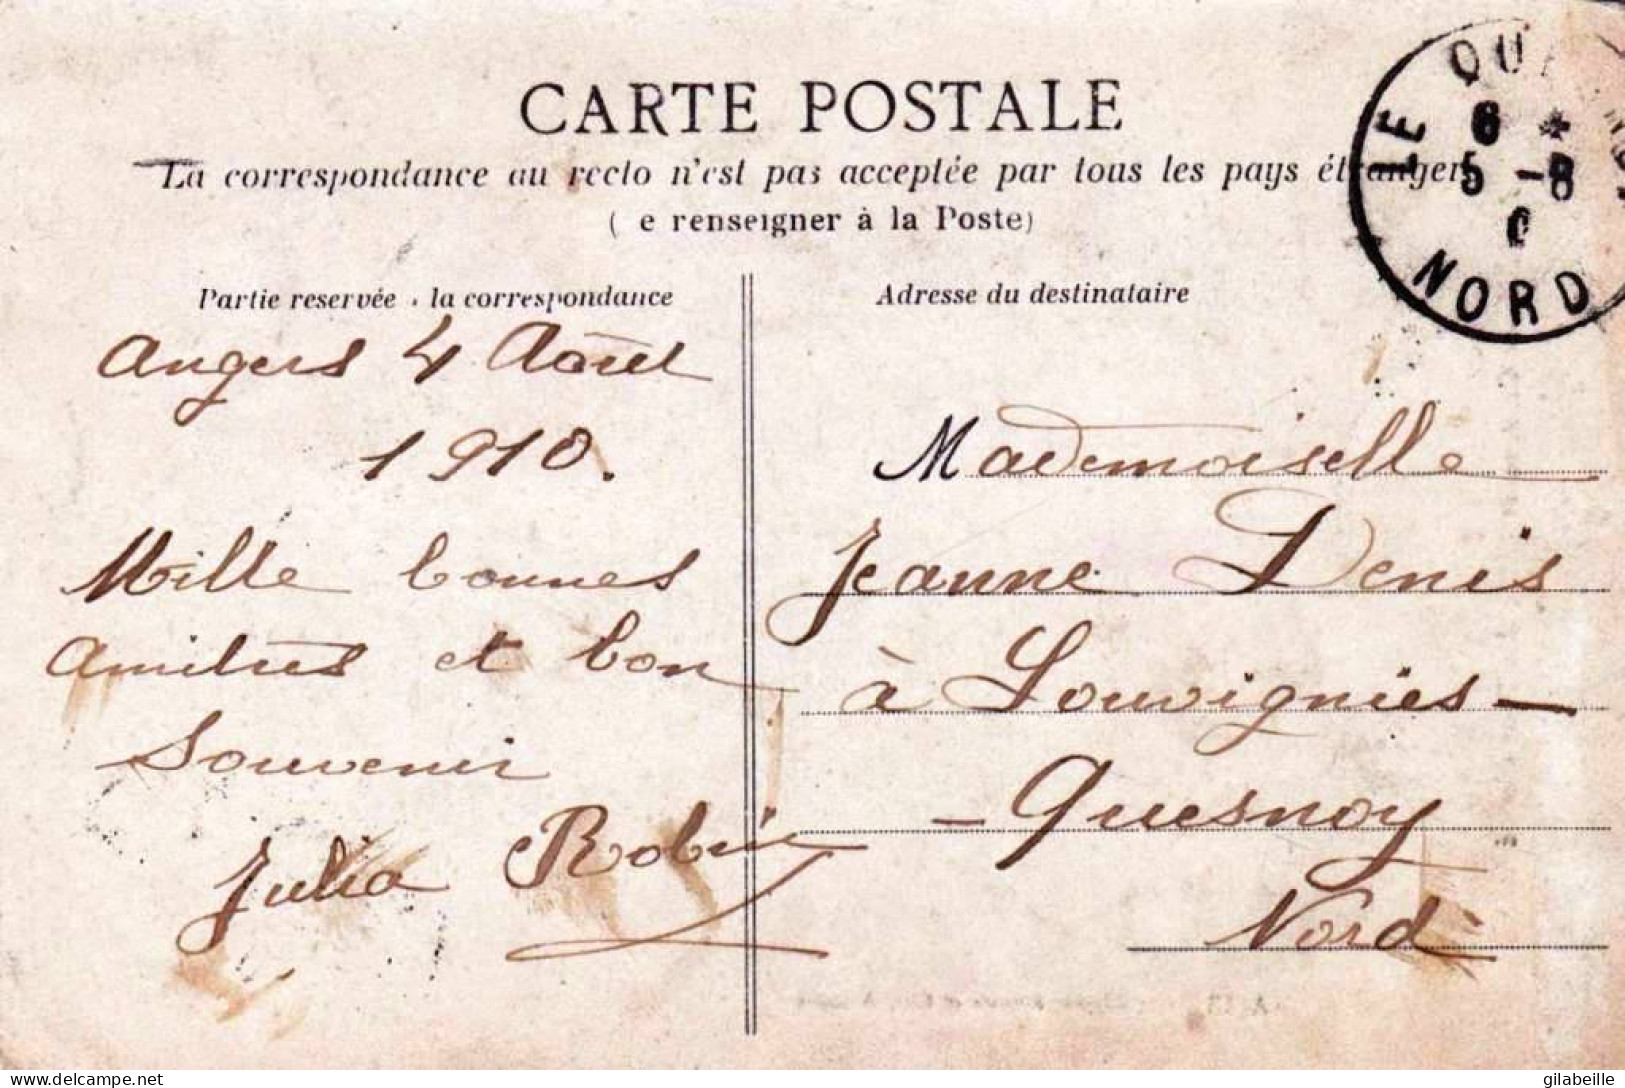 CARTE POSTALE
La correspondance au recto n'est pas acceptée par tous les pays étrangers
( e renseigner à la Poste)
Partie reservée à la correspondance
Adresse du destinataire
LE QUE NOY
6 *
5 -8
0
NORD
Angers 4 Aout
1910.
Mille bonnes
amitiés et bon
Souvenir
Julia Robin
Mademoiselle
Jeanne Denis
à Louvignies-
-Quesnoy
Nord
gilabeille